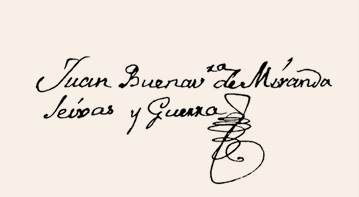 Juan Buenavra de Miranda
Seixas y Guerra